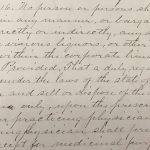 16. No person or persons sha
in any manner, or barga
directly or indirectly, any
vinous liquors, or other
within the corporate lim
Provided, That a duly reg
under the laws of the state of
and sell or dispose of the
only, upon the presen
practicing physician
physician shall
for medicinal pur